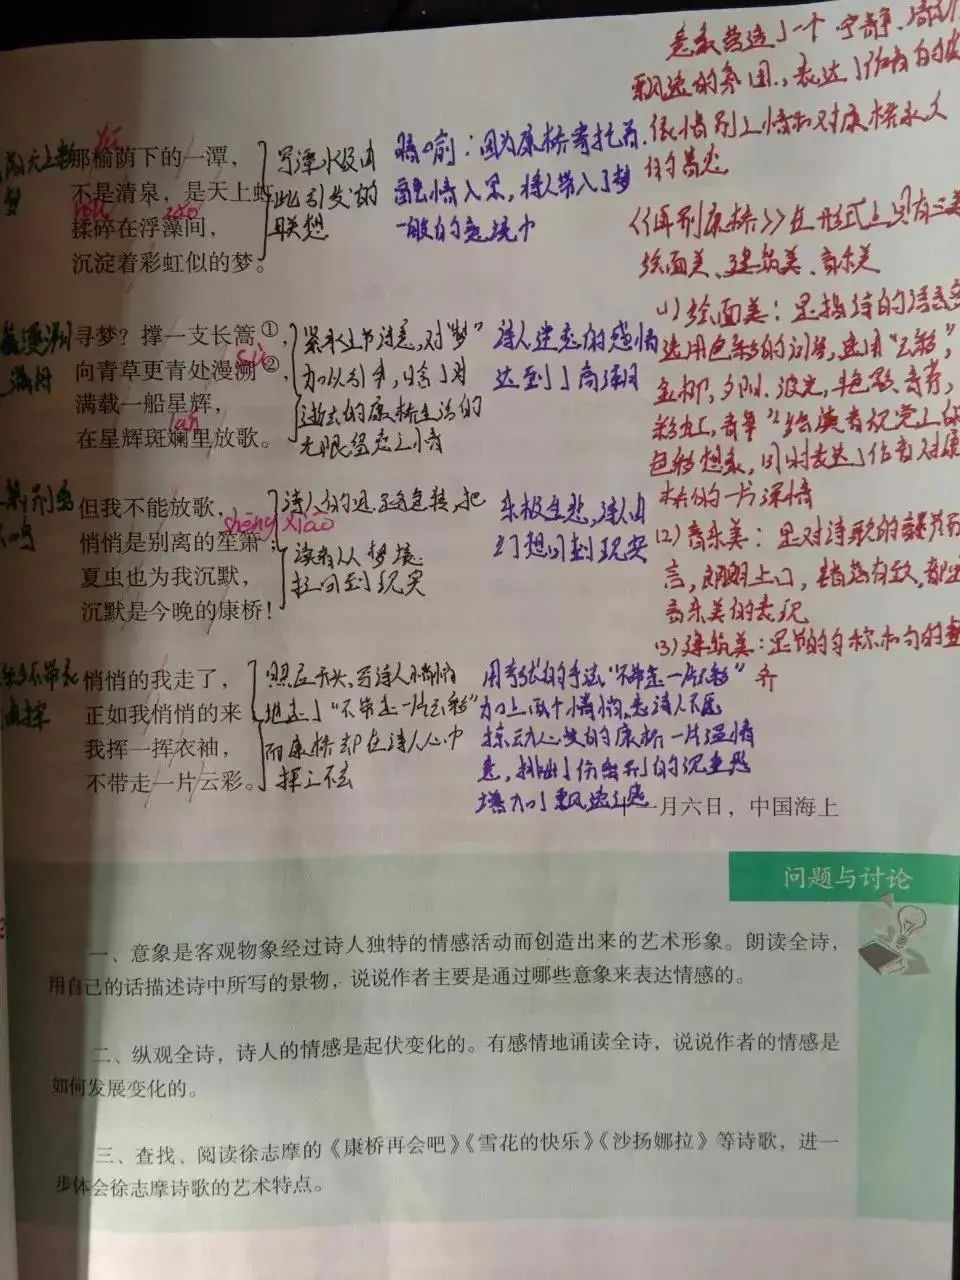 意象营造了一个宁静
飘逸的氛围，表达了作者的
依惜别之情和对康桥永久
的眷恋
yú
那榆荫下的一潭，
不是清泉，是天上虹
róu zǎo
揉碎在浮藻间，
沉淀着彩虹似的梦。
写潭水及由
此引发的
联想
暗喻：因为康桥寄托着
融情入景，将人带入了梦
一般的意境中
《再别康桥》在形式上具有三美
绘画美、建筑美、音乐美
寻梦？撑一支长篙①，
sù
向青草更青处漫溯②，
满载一船星辉，
lán
在星辉斑斓里放歌。
紧承上节诗意，对“梦”
加以引申，
逝去的康桥生活的
无限留恋之情
诗人迷恋的感情
达到了高潮
(1)绘画美：是指诗的语言
选用色彩的词语，选用“云彩，
金柳，夕阳，波光，艳影，青荇，
彩虹，青草”给读者视觉上的
色彩想象，同时表达了作者对康
桥的一片深情
但我不能放歌，
shēng xiāo
悄悄是别离的笙箫；
夏虫也为我沉默，
沉默是今晚的康桥！
读者从梦境
拉回到现实
乐极生悲，诗人由
幻想回到现实
(2)音乐美：是对诗歌的音节而
言，朗朗上口，错落有致，都是
音乐美的表现
(3)建筑美：是节的匀称和句的整
齐
悄悄的我走了，
正如我悄悄的来
我挥一挥衣袖，
不带走一片云彩。
照应开头，写诗人
地走了“不带走一片云彩”
而康桥却在诗人心中
挥之不去
用夸张的手法“不带走一片云彩”
增加了飘逸之感
十一月六日，中国海上
问题与讨论
一、意象是客观物象经过诗人独特的情感活动而创造出来的艺术形象。朗读全诗，
用自己的话描述诗中所写的景物，说说作者主要是通过哪些意象来表达情感的。
二、纵观全诗，诗人的情感是起伏变化的。有感情地诵读全诗，说说作者的情感是
如何发展变化的。
三、查找、阅读徐志摩的《康桥再会吧》《雪花的快乐》《沙扬娜拉》等诗歌，进一
步体会徐志摩诗歌的艺术特点。